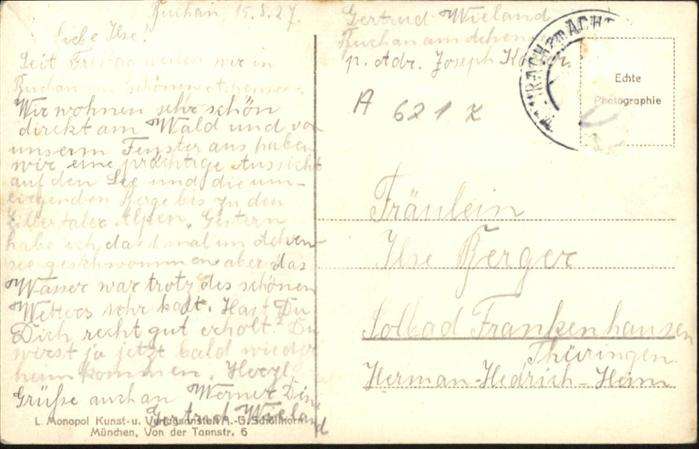 Buchau, 15.8.27.
Liebe Ilse!
Seit Freitag weilen wir in
Buchau am
Wir wohnen sehr schön
direkt am Wald und von
unserm Fenster aus haben
wir eine prächtige Aussicht
auf den See und die um-
liegenden Berge bis zu den
Zillertaler Alpen. Gestern
habe ich das 1. mal im Achen-
see geschwommen aber das
Wasser war trotz des schönen
Wetters sehr kalt. Hast Du
Dich recht gut erholt? Du
wirst ja jetzt bald wieder
heim kommen. Herzl.
Grüße auch an Werner Deine
Gertrud Wieland
Gertrud Wieland
Buchau am Achensee
p. Adr. Joseph
A 621 K
Echte
Photographie
Fräulein
Ilse Berger
Solbad Frankenhausen
Thüringen
Herman-Hedrich-Heim
L. Monopol Kunst- u. Verlagsanstalt A.-G. Schöllhorn
München, Von der Tannstr. 6